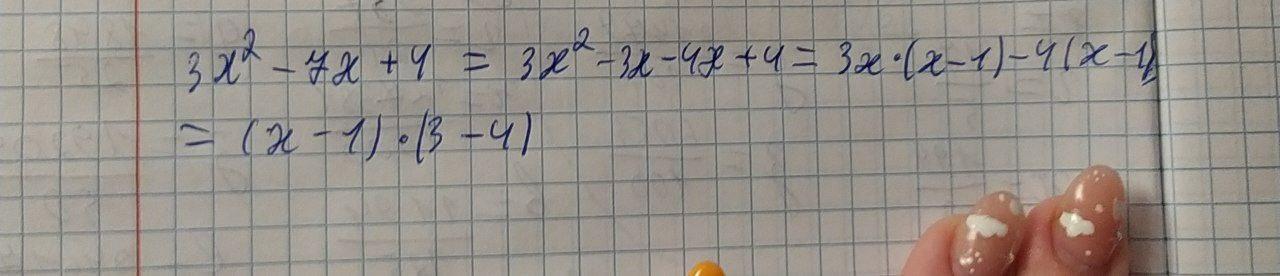 3x² - 7x + 4 = 3x² - 3x - 4x + 4 = 3x·(x-1) - 4(x-1)
= (x - 1)·(3 - 4)